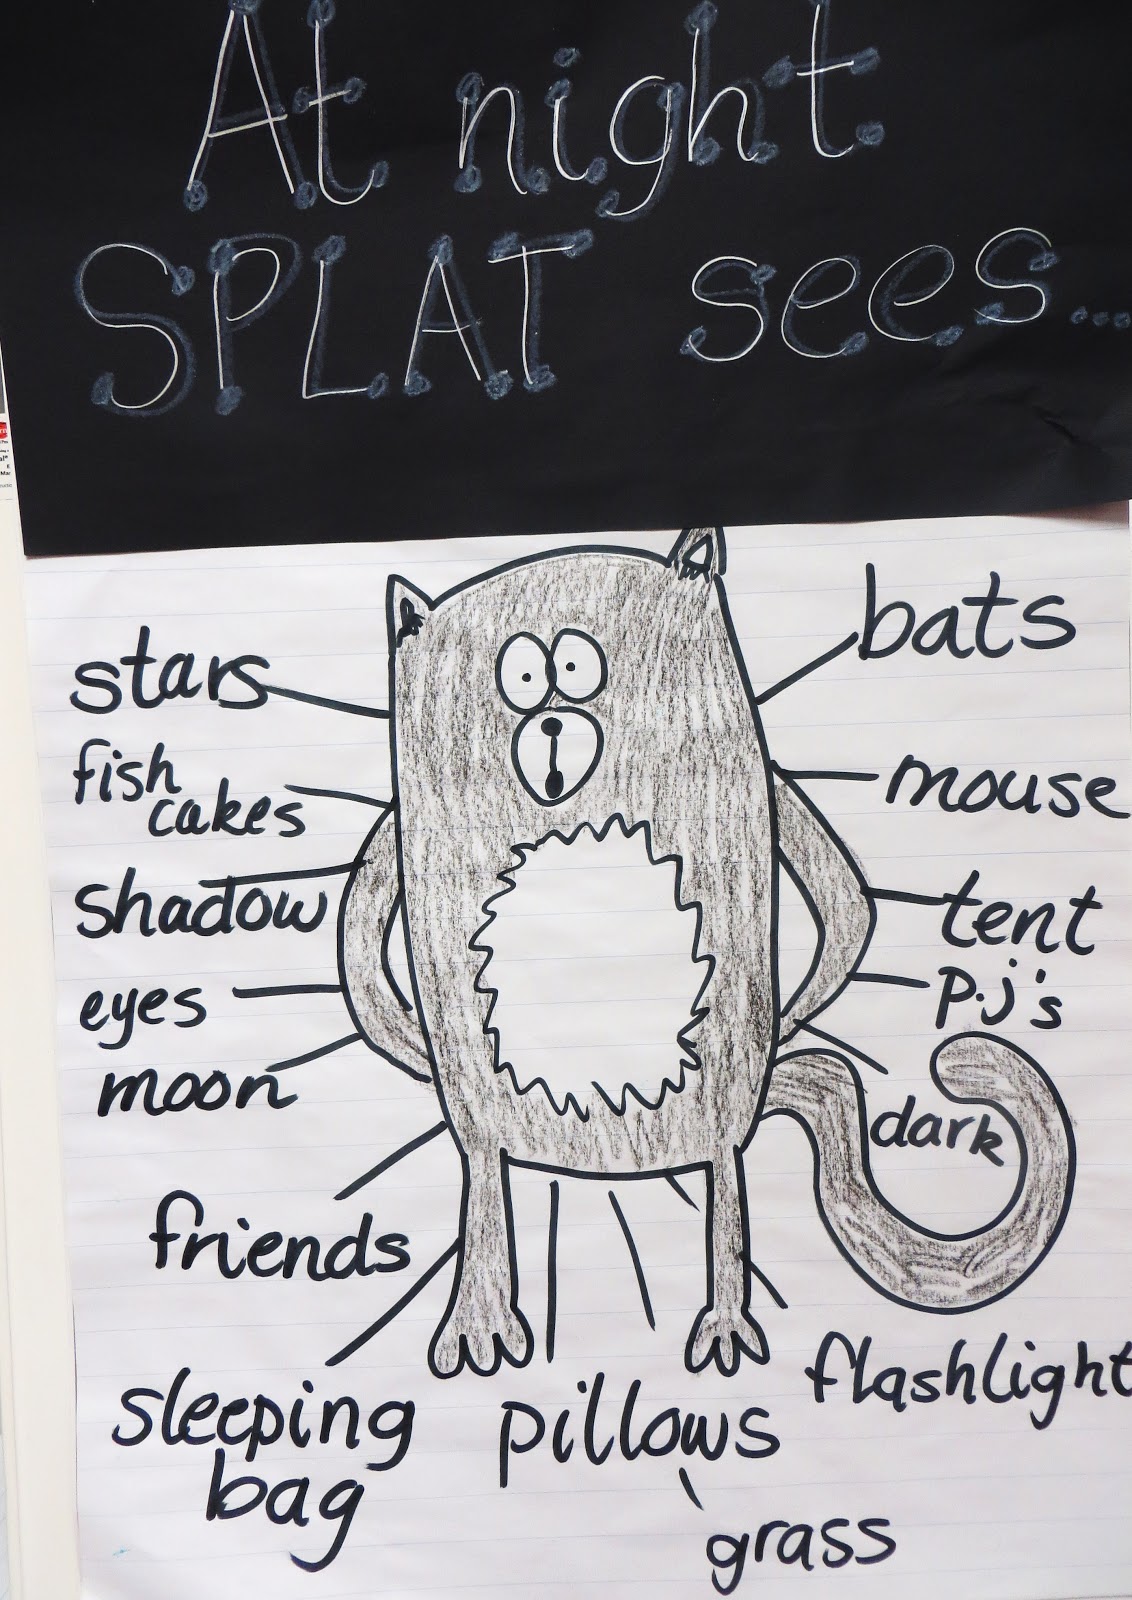 At night
SPLAT sees...
stars
fish
cakes
shadow
eyes
moon
friends
sleeping
bag
pillows
grass
bats
mouse
tent
p.j's
dark
flashlight